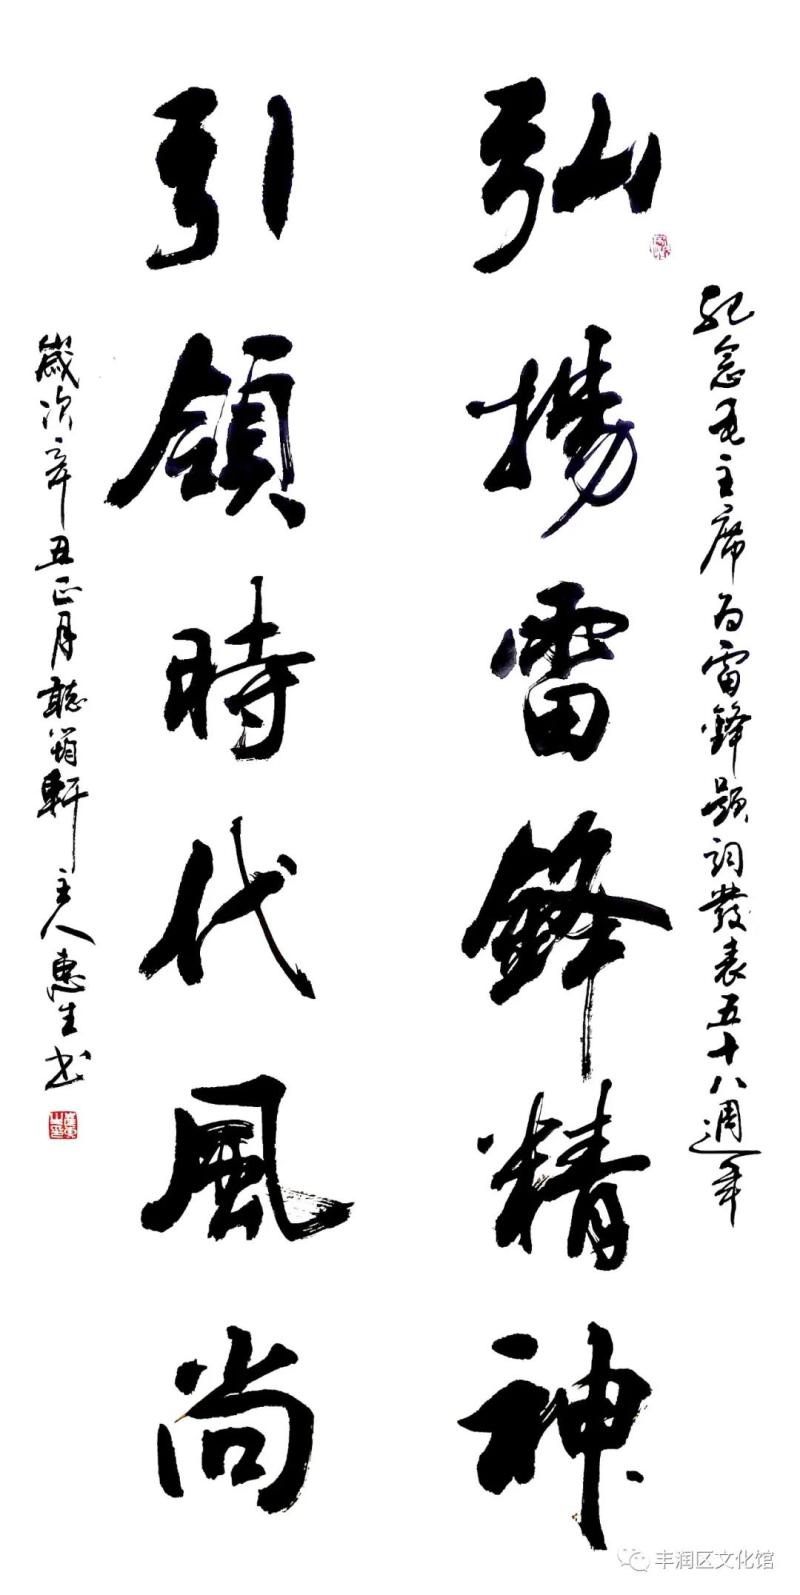 紀念毛主席为雷鋒題詞發表五十八週年
弘揚雷鋒精神
引領時代風尚
歲次辛丑正月聽筲軒主人惠生书
丰润区文化馆